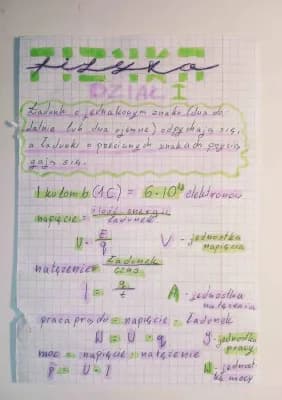 FIZYKA
fizyka
DZIAŁ I
Ładunki o jednakowym znaku (dwa do
datnie lub dwa ujemne) odpychają się,
a ładunki o przeciwnych znakach przycią
gają się.
1 kulomb (1C) = 6·10¹⁸ elektronów
napięcie = ilość energii / ładunek
U = E / q
V - jednostka napięcia
natężenie = ładunek / czas
I = q / t
A - jednostka natężenia
praca prądu = napięcie · ładunek
W = U · q
J - jednostka pracy
moc = napięcie · natężenie
P = U · I
W - jednost
ka mocy